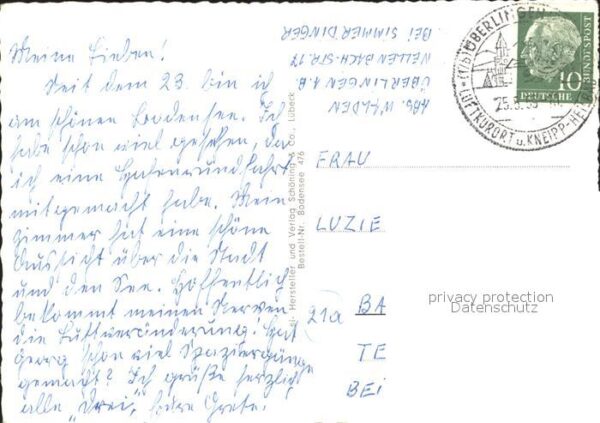 Meine Lieben!
Seit dem 23. bin ich
am schönen Bodensee. Ich
habe schon viel gesehen, da
ich eine Hafenrundfahrt
mitgemacht habe. Mein
Zimmer hat eine schöne
Aussicht über die Stadt
und den See. Hoffentlich
bekommt meinen Nerven
die Luftveränderung! Hat
Georg schon viel Spaziergänge
gemacht? Ich grüße herzlich
alle "Drei", Eure Grete.
ABS. WALDEN
ÜBERLINGEN A. B.
NELLENBACH-STR. 17
BEI SIMMERDINGER
Hersteller und Verlag Schöning & Co., Lübeck
Bestell-Nr. Bodensee 476
ÜBERLINGEN
LUFTKURORT u. KNEIPP-HEILBAD
10
DEUTSCHE
BUNDESPOST
FRAU
LUZIE
21a
BA
TE
BEI
privacy protection
Datenschutz